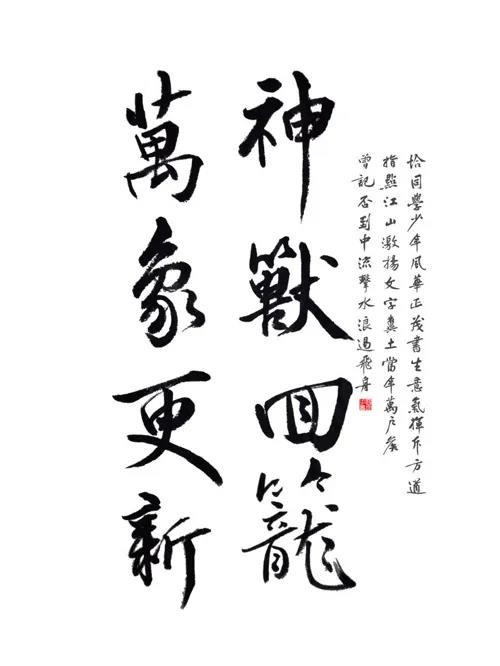 恰同學少年風華正茂書生意氣揮斥方遒
指點江山激揚文字糞土當年萬户侯
曾記否到中流擊水浪遏飛舟
神獸回籠
萬象更新